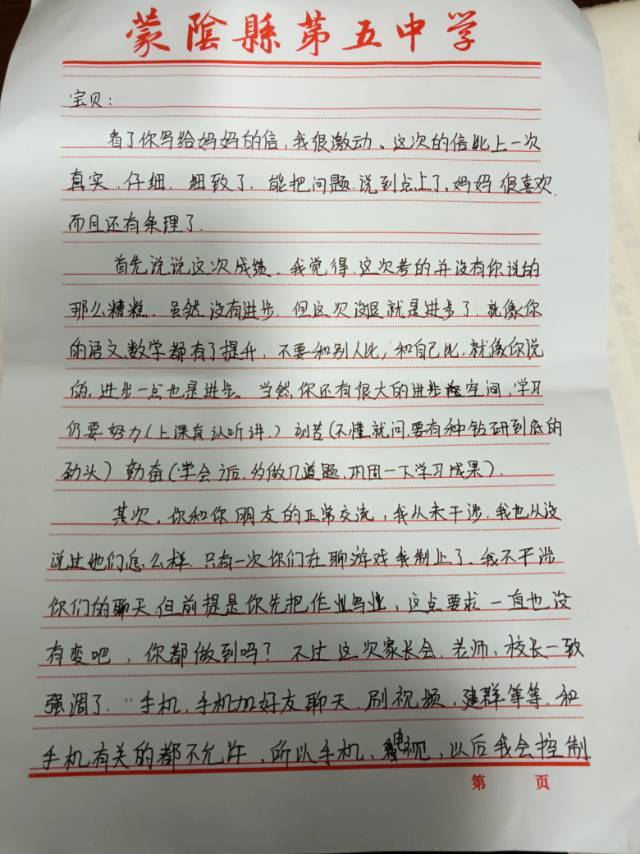 蒙阴縣第五中学
宝贝：
看了你写给妈妈的信，我很激动。这次的信比上一次
真实、仔细、细致了，能把问题说到点上了，妈妈很喜欢，
而且还有条理了。
首先说说这次成绩。我觉得，这次考的并没有你说的
那么糟糕。虽然没有进步，但这次没退就是进步了，就像你
的语文、数学都有了提升，不要和别人比，和自己比，就像你说
的，进步一点也是进步。当然，你还有很大的进步空间，学习
仍要努力（上课真认听讲，）刻苦（不懂就问，要有种钻研到底的
劲头）勤奋（学会之后，多做几道题，巩固一下学习成果）。
其次，你和你朋友的正常交流，我从未干涉，我也从没
说过他们怎么样，只有一次你们在聊游戏我制止了。我不干涉
你们的聊天，但前提是你先把作业写业，这点要求一直也没
有变吧，你都做到吗？不过这次家长会，老师、校长一致
强调了，“手机，手机加好友聊天，刷视频，建群等等，和
手机有关的都不允许，所以手机、电视，以后我会控制
第 页